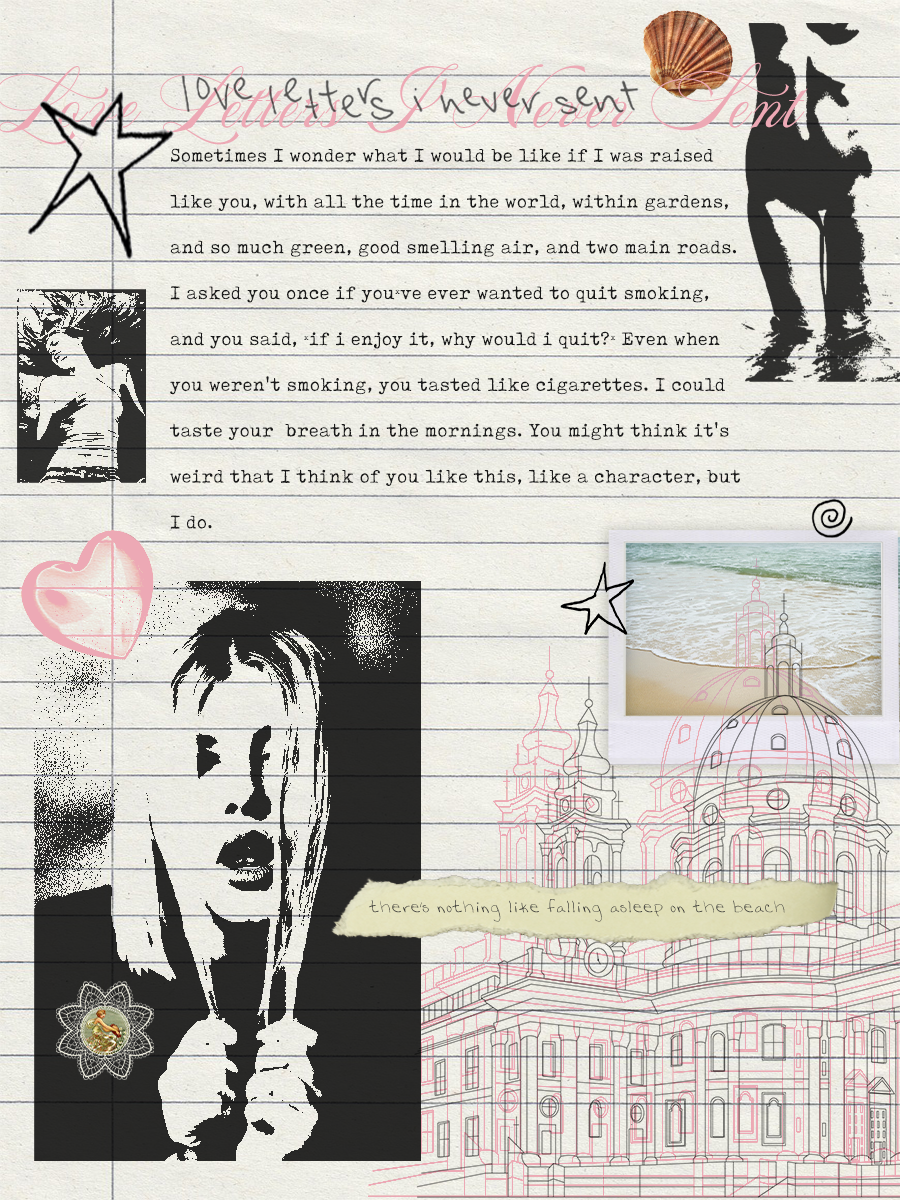 Love Letters I Never Sent
love letters i never sent
Sometimes I wonder what I would be like if I was raised
like you, with all the time in the world, within gardens,
and so much green, good smelling air, and two main roads.
I asked you once if you×ve ever wanted to quit smoking,
and you said, ×if i enjoy it, why would i quit?× Even when
you weren't smoking, you tasted like cigarettes. I could
taste your  breath in the mornings. You might think it's
weird that I think of you like this, like a character, but
I do.
there's nothing like falling asleep on the beach